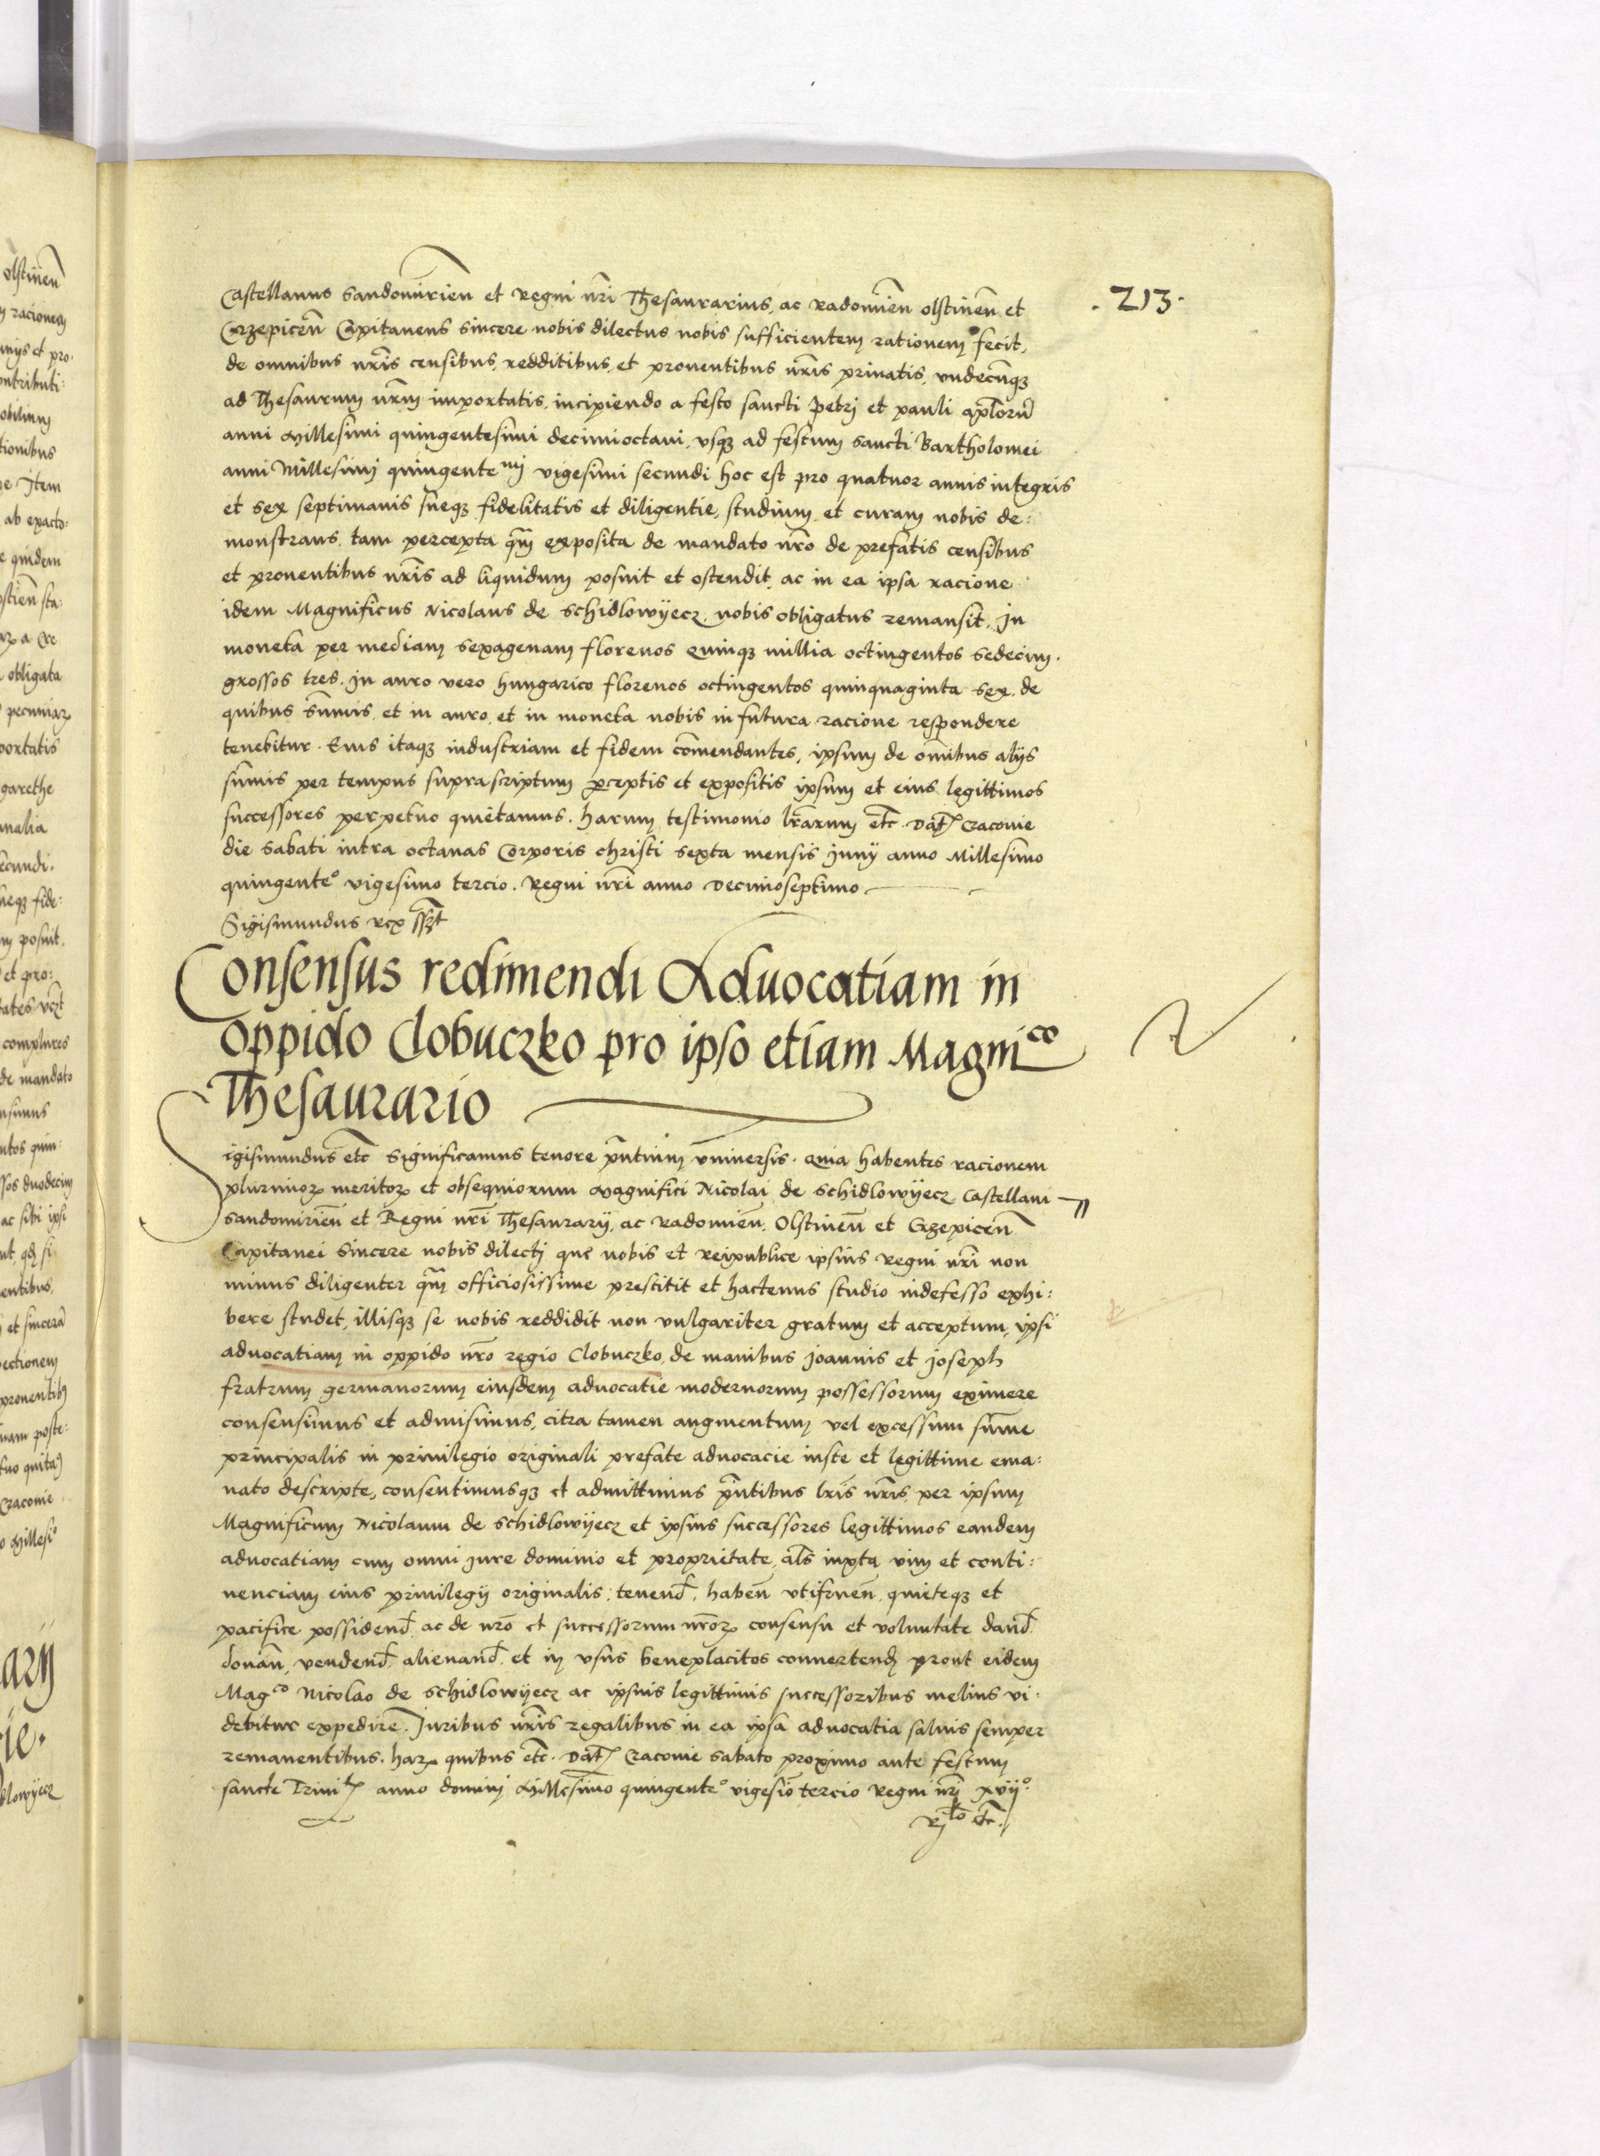 . 213 .
Castellanus Sandomirien̄ et Regni nr̄i Thesaurarius, ac Radomien̄ Olstinen̄ et
Crzepicen̄ Capitaneus sincere nobis dilectus nobis sufficientem rationem fecit,
de omnibus nr̄is censibus, redditibus, et prouentibus nr̄is priuatis, vndecunqȝ
ad Thesaurum nr̄m importatis, incipiendo a festo sancti Petri et pauli apl̄orum̄
anni Millesimi quingentesimi decimioctaui, vsqȝ ad festum sancti Bartholomei
anni Millesimi quingente^mi vigesimi secundi hoc est pro quatuor annis integris
et sex septimanis sueqȝ fidelitatis et diligentie, studium et curam nobis de:
monstrans, tam percepta qᷓm exposita de mandato nr̄o de prefatis censibus
et prouentibus nr̄is ad liquidum posuit et ostendit, ac in ea ipsa racione
idem Magnificus Nicolaus de Schidlowÿecz, nobis obligatus remansit, In
moneta per mediam sexagenam florenos quinqȝ millia octingentos sedecim.
grossos tres. In auro vero hungarico florenos octingentos quinquaginta sex, de
quibus sum̄is et in auro, et in moneta nobis in futura racione respondere
tenebitur. Eius itaqȝ industriam et fidem com̄endantes, ipsum de om̄ibus alijs
sum̄is per tempus suprascriptum ꝑceptis et expositis ipsum et eius legittimos
successores perpetuo quietamus. Harum testimonio lr̄arum etc̄. Dat̄ Cracouie
die Sabati intra octauas Corporis christi sexta mensis Junij anno Millesimo
quingente° vigesimo tercio. Regni nr̄i anno Decimoseptimo
Sigismundus rex ss̄t
Consensus redimendi Aduocatiam in
oppido Clobuczko pro ipso etiam Magni^co
Thesaurario
Sigismundus etc̄ Significamus tenore p̄ntium vniuersis. Quia habentes racionem
plurimoꝝ meritoꝝ et obsequiorum Magnifici Nicolai de Schidlowÿecz Castellani
Sandomirien̄ et Regni nr̄i Thesaurarij, ac Radomien̄, Olstinen̄ et Crzepicen̄
Capitanei sincere nobis dilecti que nobis et reipublice ipsius regni nr̄i non
minus diligenter qᷓm officiosissime prestitit et hactenus studio indefesso exhi:
bere studet, illisqȝ se nobis reddidit non vulgariter gratum et acceptum, ipsi
aduocatiam in oppido nr̄o regio Clobuczko, de manibus Joannis et Joseph
fratrum germanorum eiusdem aduocatie modernorum possessorum eximere
consensimus et admisimus, citra tamen augmentum vel excessum sum̄e
principalis in priuilegio originali prefate aduocacie iuste et legittime ema:
nato descripte, consentimusqȝ et admittimus p̄ntibus lr̄is nr̄is, per ipsum
Magnificum Nicolaum de Schidlowÿecz et ipsius successores legittimos eandem
aduocatiam cum omni iure dominio et proprietate, al̄s iuxta vim et conti:
nenciam eius priuilegij originalis, tenend̄, haben̄ vtifruen̄, quieteqȝ et
pacifice possidend̄, ac de nr̄o et successorum nr̄oꝝ consensu et voluntate dand̄
donan̄, vendend̄, alienand̄, et in vsus beneplacitos conuertend̄ prout eidem
Mag^co Nicolao de Schidlowÿecz ac ipsius legittimis successoribus melius vi:
debitur expedire. Juribus nr̄is regalibus in ea ipsa aduocatia saluis semper
remanentibus. Haꝝ quibus etc̄. Dat̄ Cracouie Sabato proximo ante festum
sancte Trinit̄ anno domini Millesimo quingente° vigesio̅ tercio Regni nr̄i xvij°.